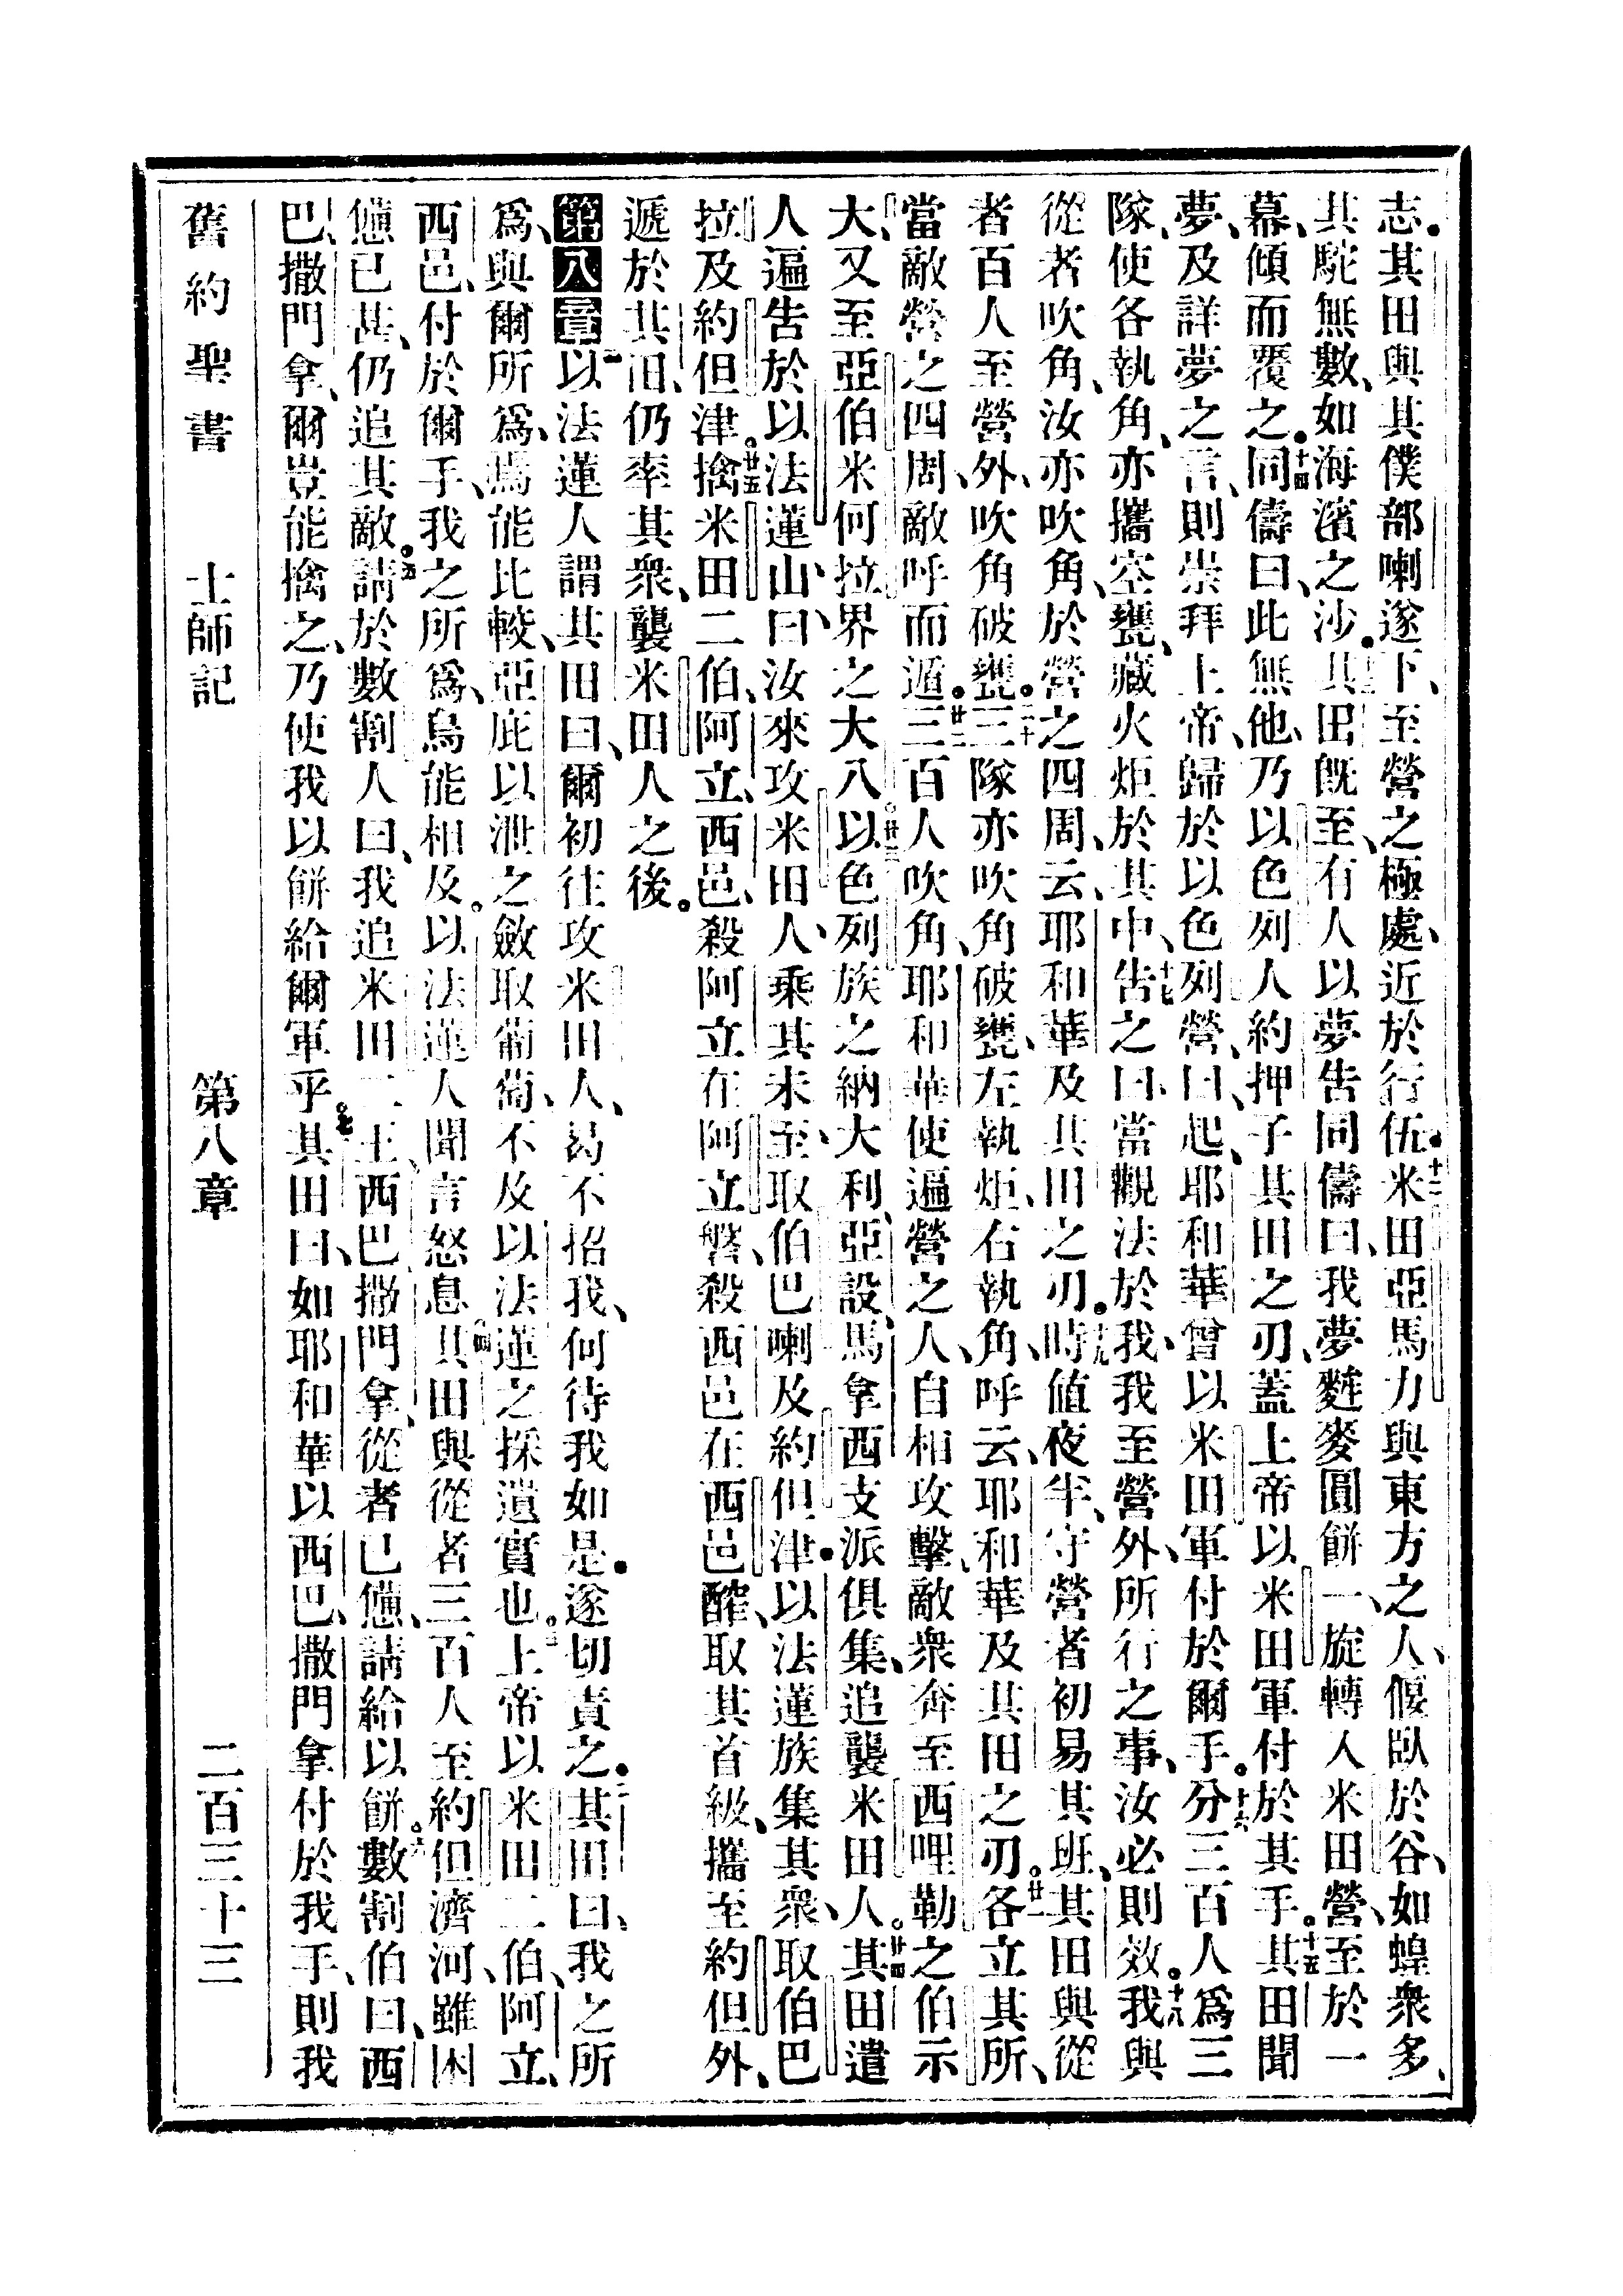 志。其田與其僕部喇遂下、至營之極處、近於行伍。十二米田亞馬力與東方之人、偃臥於谷、如蝗衆多、
其駝無數、如海濱之沙。其田旣至、有人以夢告同儔曰、我夢麰麥圓餅一、旋轉入米田營、至於一
幕、傾而覆之。十四同儔曰、此無他、乃以色列人約押子其田之刃、蓋上帝以米田軍付於其手。十五其田聞
夢、及詳夢之言、則崇拜上帝、歸於以色列營、曰起、耶和華曾以米田軍付於爾手。十六分三百人爲三
隊、使各執角、亦攜空甕、藏火炬於其中、十七告之曰、當觀法於我、我至營外、所行之事、汝必則效。十八我與
從者吹角、汝亦吹角、於營之四周、云、耶和華及其田之刃。十九時値夜半、守營者初易其班、其田與從
者百人至營外、吹角破甕。二十三隊亦吹角破甕、左執炬、右執角、呼云、耶和華及其田之刃。廿一各立其所、
當敵營之四周、敵呼而遁。廿二三百人吹角、耶和華使遍營之人、自相攻擊、敵衆奔至西哩勒之伯示
大、又至亞伯米何拉界之大八。廿三以色列族之納大利、亞設、馬拿西支派俱集、追襲米田人。廿四其田遣
人遍告於以法蓮山、曰、汝來攻米田人、乘其未至、取伯巴喇及約但津。以法蓮族集其衆、取伯巴
拉及約但津。廿五擒米田二伯、阿立、西邑、殺阿立在阿立磐、殺西邑在西邑醡、取其首級、攜至約但外、
遞於其田、仍率其衆、襲米田人之後。
第八章一以法蓮人謂其田曰、爾初往攻米田人、曷不招我、何待我如是。遂切責之。二其田曰、我之所
爲、與爾所爲、焉能比較、亞庇以泄之斂取葡萄、不及以法蓮之採遺實也。三上帝以米田二伯、阿立、
西邑、付於爾手、我之所爲、烏能相及。以法蓮人聞言怒息。四其田與從者三百人至約但濟河、雖困
憊已甚、仍追其敵。五請於數割人曰、我追米田二王、西巴、撒門拿、從者已憊、請給以餅。六數割伯曰、西
巴、撒門拿、爾豈能擒之、乃使我以餅給爾軍乎。七其田曰、如耶和華以西巴、撒門拿付於我手、則我
舊約聖書　士師記　第八章　二百三十三